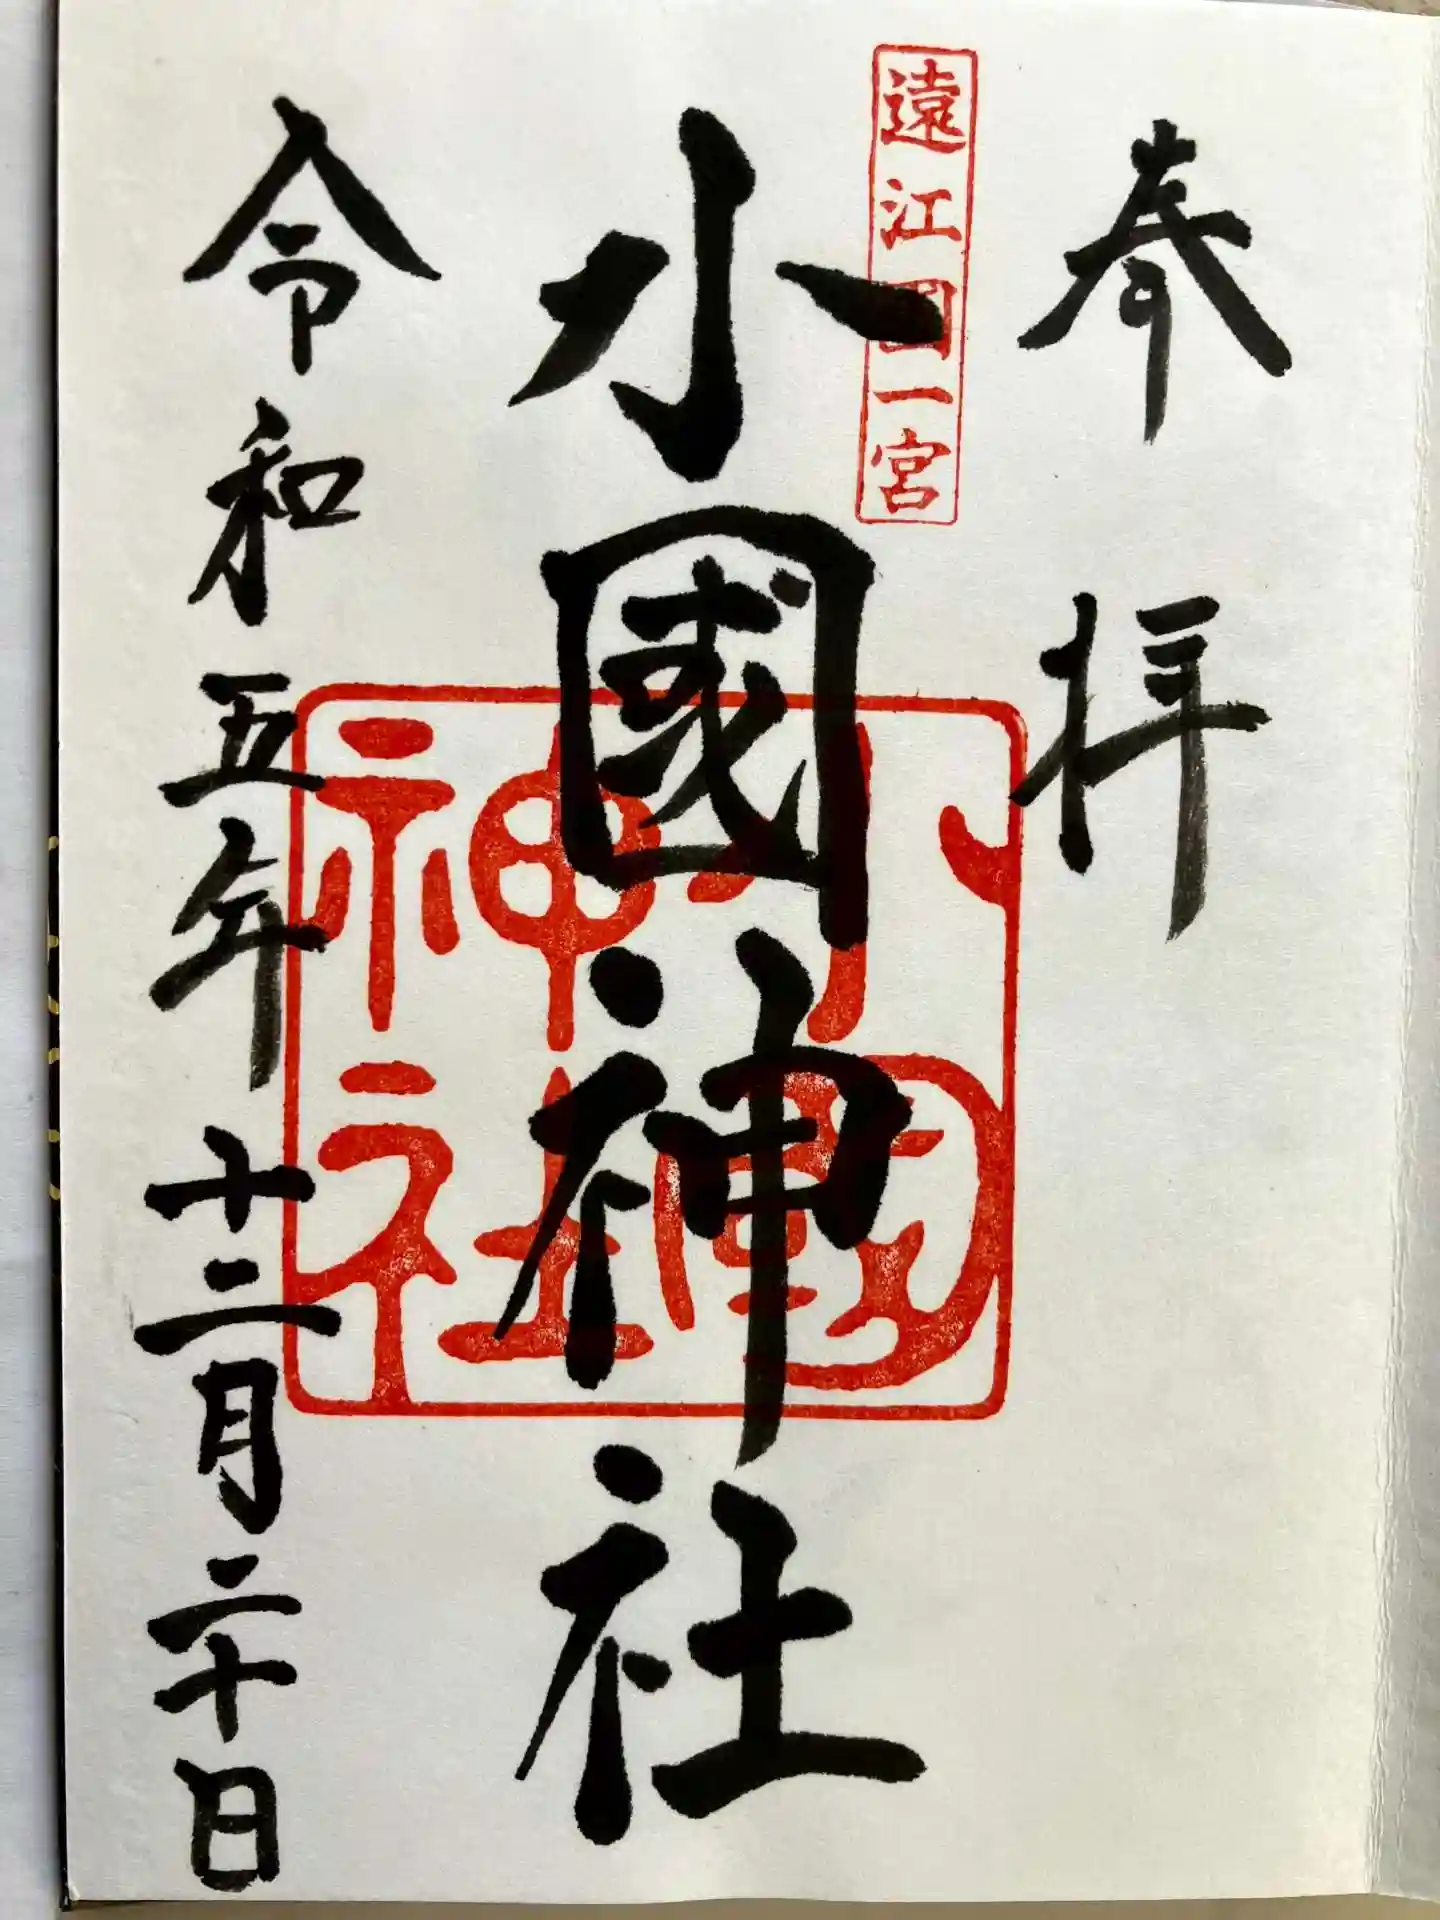 奉拝
遠江国一宮
小國神社
小國神社
令和五年十二月二十日